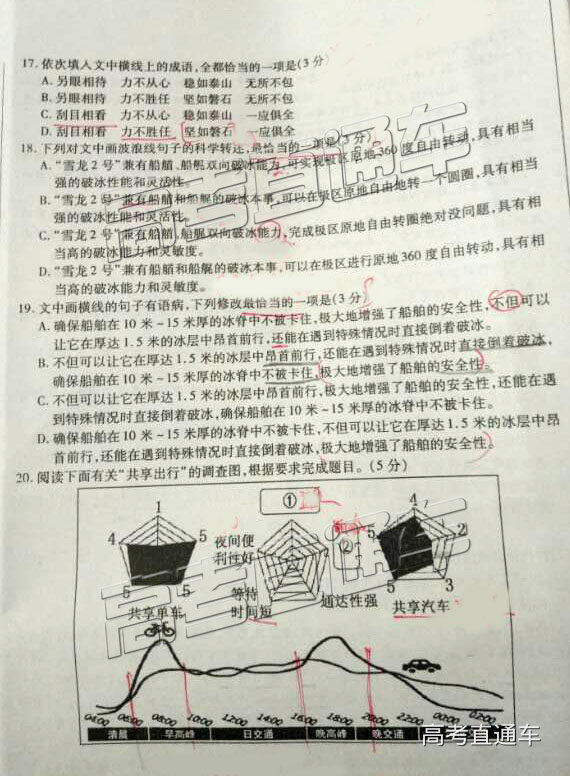 17. 依次填入文中横线上的成语,全都恰当的一项是(3分)
A. 另眼相待 力不从心 稳如泰山 无所不包
B. 另眼相待 力不胜任 坚如磐石 无所不包
C. 刮目相看 力不从心 稳如泰山 一应俱全
D. 刮目相看 力不胜任 坚如磐石 一应俱全
18. 下列对文中画波浪线句子的科学转述,最恰当的一项是(3分)
A. “雪龙2号”兼有船艏、船艉双向破冰能力,可实现极区原地360度自由转动,具有相当
强的破冰性能和灵活性。
B. “雪龙2号”兼有船艏和船艉的破冰本事,可以在极区原地自由地转一个圆圈,具有相当
强的破冰性能和灵活性。
C. “雪龙2号”兼有船艏、船艉双向破冰能力,完成极区原地自由转圈绝对没问题,具有相
当高的破冰能力和灵敏度。
D. “雪龙2号”兼有船艏和船艉的破冰本事,可以在极区进行原地360度自由转动,具有相
当高的破冰能力和灵敏度。
19. 文中画横线的句子有语病,下列修改最恰当的一项是(3分)
A. 确保船舶在10米~15米厚的冰脊中不被卡住,极大地增强了船舶的安全性,不但可以
让它在厚达1.5米的冰层中昂首前行,还能在遇到特殊情况时直接倒着破冰。
B. 不但可以让它在厚达1.5米的冰层中昂首前行,还能在遇到特殊情况时直接倒着破冰,
确保船舶在10米~15米厚的冰脊中不被卡住,极大地增强了船舶的安全性。
C. 不但可以让它在厚达1.5米的冰层中昂首前行,极大地增强了船舶的安全性,还能在遇
到特殊情况时直接倒着破冰,确保船舶在10米~15米厚的冰脊中不被卡住。
D. 确保船舶在10米~15米厚的冰脊中不被卡住,不但可以让它在厚达1.5米的冰层中昂
首前行,还能在遇到特殊情况时直接倒着破冰,极大地增强了船舶的安全性。
20. 阅读下面有关“共享出行”的调查图,根据要求完成题目。(5分)
1
4 5
5 5
共享单车
①
夜间便
利性好
②
等待
时间短
通达性强
4
5 2
5 3
共享汽车
04:00 06:00 08:00 10:00 12:00 14:00 16:00 18:00 20:00 22:00 00:00 02:00
清晨 早高峰 日交通 晚高峰 晚交通
高考直通车
高考直通车
高考直通车